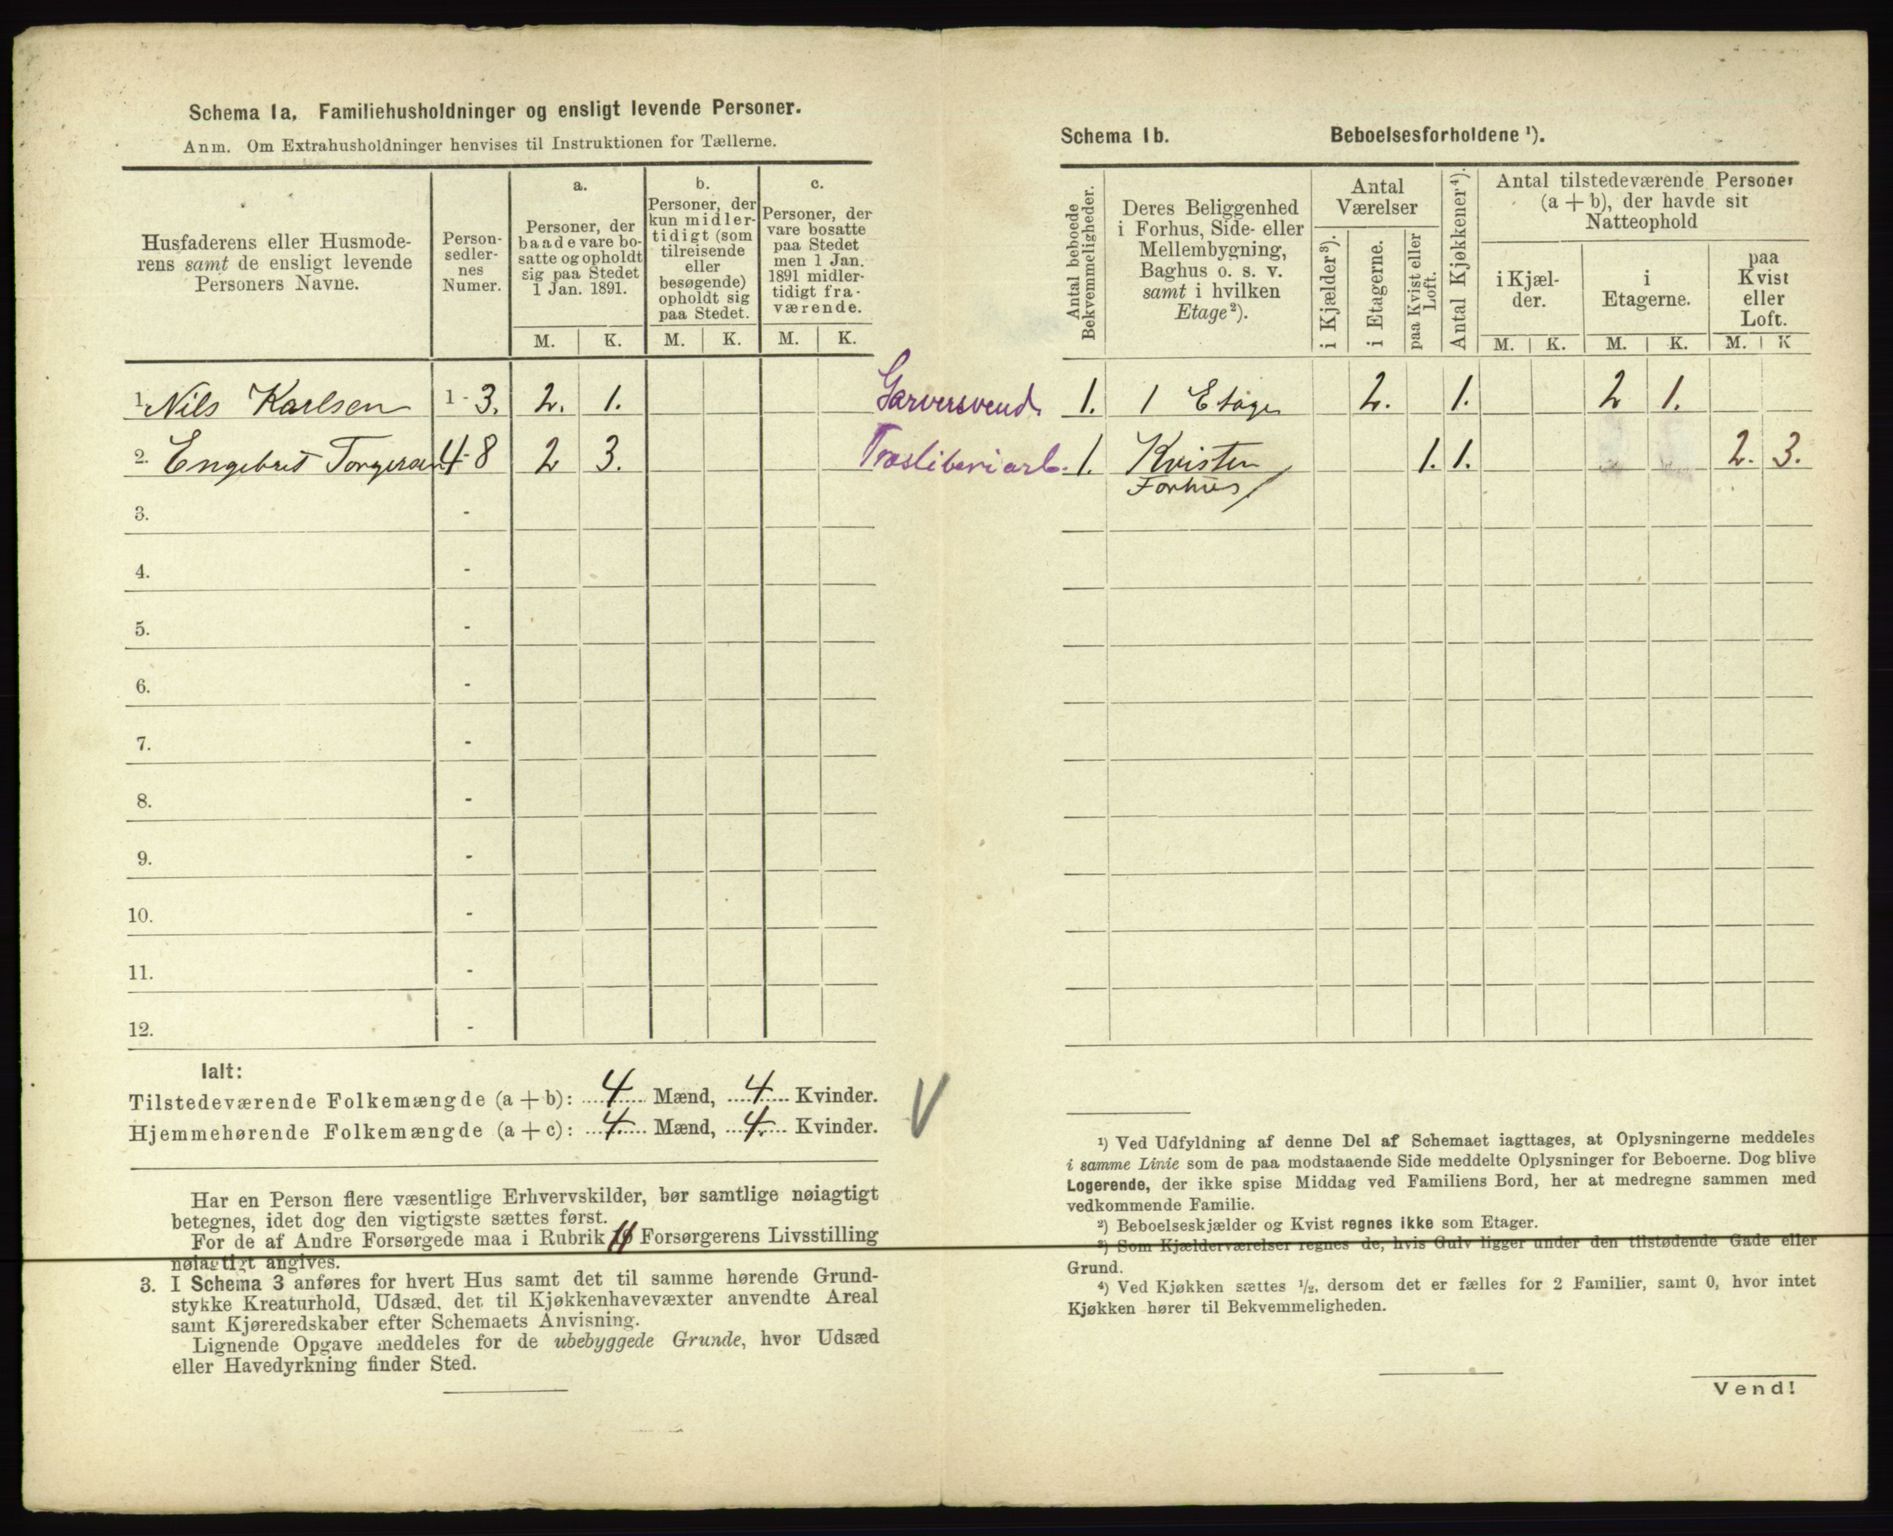 Schema 1a. Familiehusholdninger og ensligt levende Personer.
Anm. Om Extrahusholdninger henvises til Instruktionen for Tællerne.
Husfaderens eller Husmoderens samt de ensligt levende Personers Navne.
Personsedlernes Numer.
a.
Personer, der baade vare bosatte og opholdt sig paa Stedet 1 Jan. 1891.
b.
Personer, der kun midlertidigt (som tilreisende eller besøgende) opholdt sig paa Stedet.
c.
Personer, der vare bosatte paa Stedet men 1 Jan. 1891 midlertidigt fraværende.
M. K. M. K. M. K.
1. Nils Karlsen 1-3. 2. 1. Garversvend
2. Engebret Torgersen 4-8 2 3.
3. -
4. -
5. -
6. -
7. -
8. -
9. -
10. -
11. -
12. -
Ialt:
Tilstedeværende Folkemængde (a + b): 4 Mænd, 4 Kvinder.
Hjemmehørende Folkemængde (a + c): 4. Mænd, 4. Kvinder.
V
Har en Person flere væsentlige Erhvervskilder, bør samtlige nøiagtigt
betegnes, idet dog den vigtigste sættes først.
For de af Andre Forsørgede maa i Rubrik Forsørgerens Livsstilling
nøiagtigt angives.
3. I Schema 3 anføres for hvert Hus samt det til samme hørende Grund-
stykke Kreaturhold, Udsæd, det til Kjøkkenhavevæxter anvendte Areal
samt Kjøreredskaber efter Schemaets Anvisning.
Lignende Opgave meddeles for de ubebyggede Grunde, hvor Udsæd
eller Havedyrkning finder Sted.
Schema 1b. Beboelsesforholdene ¹).
Antal beboede Bekvemmeligheder.
Deres Beliggenhed i Forhus, Side- eller Mellembygning, Baghus o. s. v. samt i hvilken Etage ²).
Antal Værelser
i Kjælder ³).
i Etagerne.
paa Kvist eller Loft.
Antal Kjøkkener ⁴).
Antal tilstedeværende Personer (a + b), der havde sit Natteophold
i Kjælder.
i Etagerne.
paa Kvist eller Loft.
M. K. M. K. M. K
1. 1 Etage 2. 1. 2 1.
1. Kvisten 1. 1. 2. 3.
Forhus
¹) Ved Udfyldning af denne Del af Schemaet iagttages, at Oplysningerne meddeles
i samme Linie som de paa modstaaende Side meddelte Oplysninger for Beboerne. Dog blive
Logerende, der ikke spise Middag ved Familiens Bord, her at medregne sammen med
vedkommende Familie.
²) Beboelseskjælder og Kvist regnes ikke som Etager.
³) Som Kjælderværelser regnes de, hvis Gulv ligger under den tilstødende Gade eller
Grund.
⁴) Ved Kjøkken sættes ½, dersom det er fælles for 2 Familier, samt 0, hvor intet
Kjøkken hører til Bekvemmeligheden.
Vend!